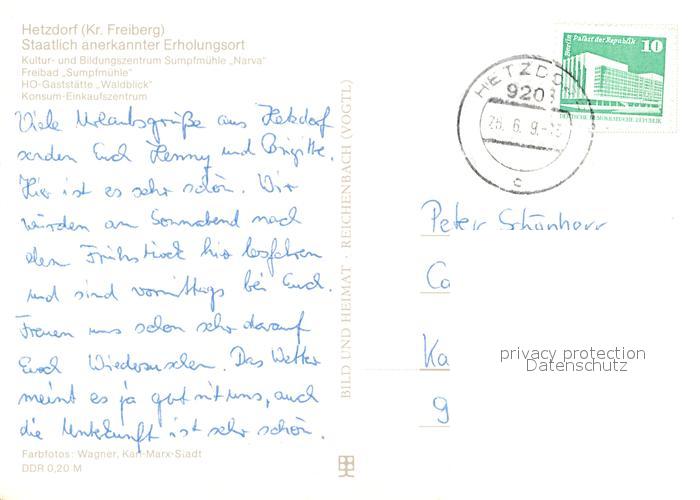 Hetzdorf (Kr. Freiberg)
Staatlich anerkannter Erholungsort
Kultur- und Bildungszentrum Sumpfmühle „Narva"
Freibad „Sumpfmühle"
HO-Gaststätte „Waldblick"
Konsum-Einkaufszentrum
Viele Urlaubsgrüße aus Hetzdorf
senden Euch Henny und Brigitte.
Hier ist es sehr schön. Wir
würden am Sonnabend nach
dem Frühstück hier losfahren
und sind vormittags bei Euch.
Freuen uns schon sehr darauf
Euch Wiederzusehen. Das Wetter
meint es ja gut mit uns, auch
die Unterkunft ist sehr schön.
Farbfotos: Wagner, Karl-Marx-Stadt
DDR 0,20 M
BILD UND HEIMAT · REICHENBACH (VOGTL)
HETZDO
920
c
Berlin Palast der Republik 10
DEUTSCHE DEMOKRATISCHE REPUBLIK
Peter Schönherr
Ca
Ka
9
privacy protection
Datenschutz